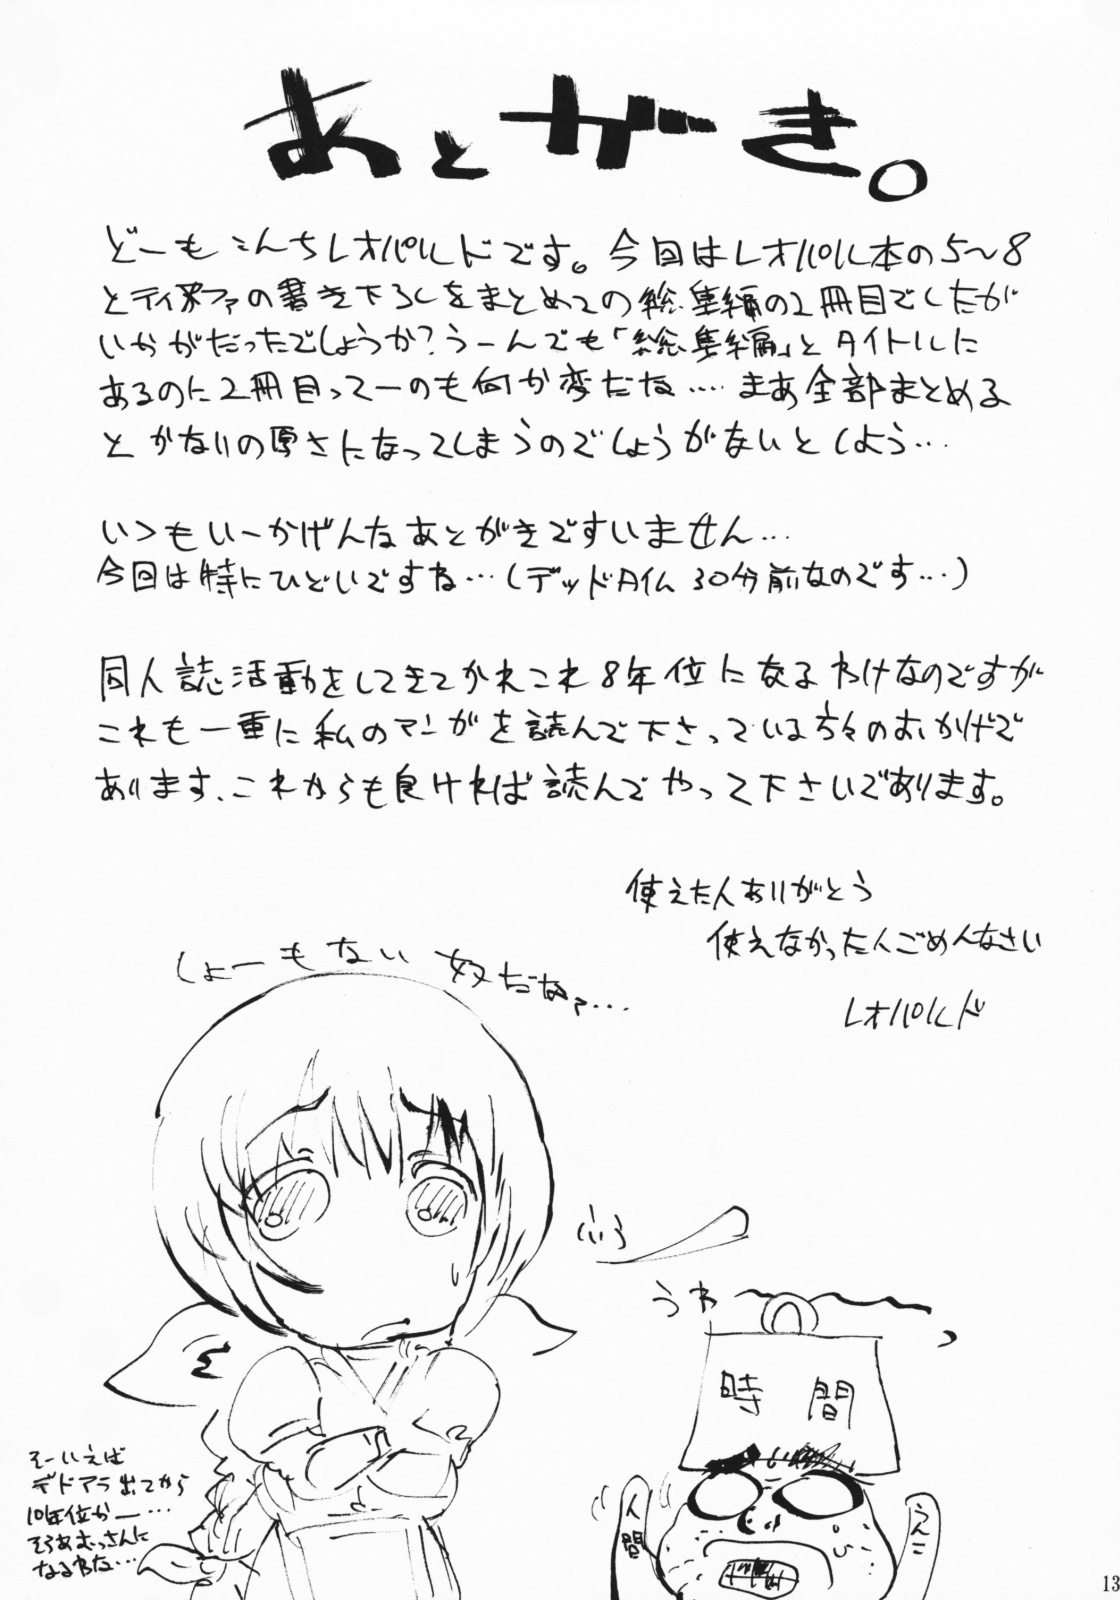 あとがき。
どーもこんちレオパルドです。今回はレオパル本の5〜8
とティファの書き下ろしをまとめての総集編の2冊目でしたが
いかがだったでしょうか?うーんでも「総集編」とタイトルに
あるのに2冊目ってーのも何か変だな…‥まあ全部まとめる
とかなりの厚さになってしまうのでしょうがないとしよう…
いつもいーかげんなあとがきですいません…
今回は特にひどいですね…(デッドタイム30分前なのです…)
同人誌活動をしてきてかれこれ8年位になるわけなのですが
これも一重に私のマンガを読んで下さっている方々のおかげで
あります、これからも良ければ読んでやって下さいであります。
使えた人ありがとう
使えなかった人ごめんなさい
レオパルド
しょーもない奴だなァ…
ふぅ
うわ
時間
人間
そーいえば
デドアラ出てから
10年位かー…
そろ
なるわな…
13